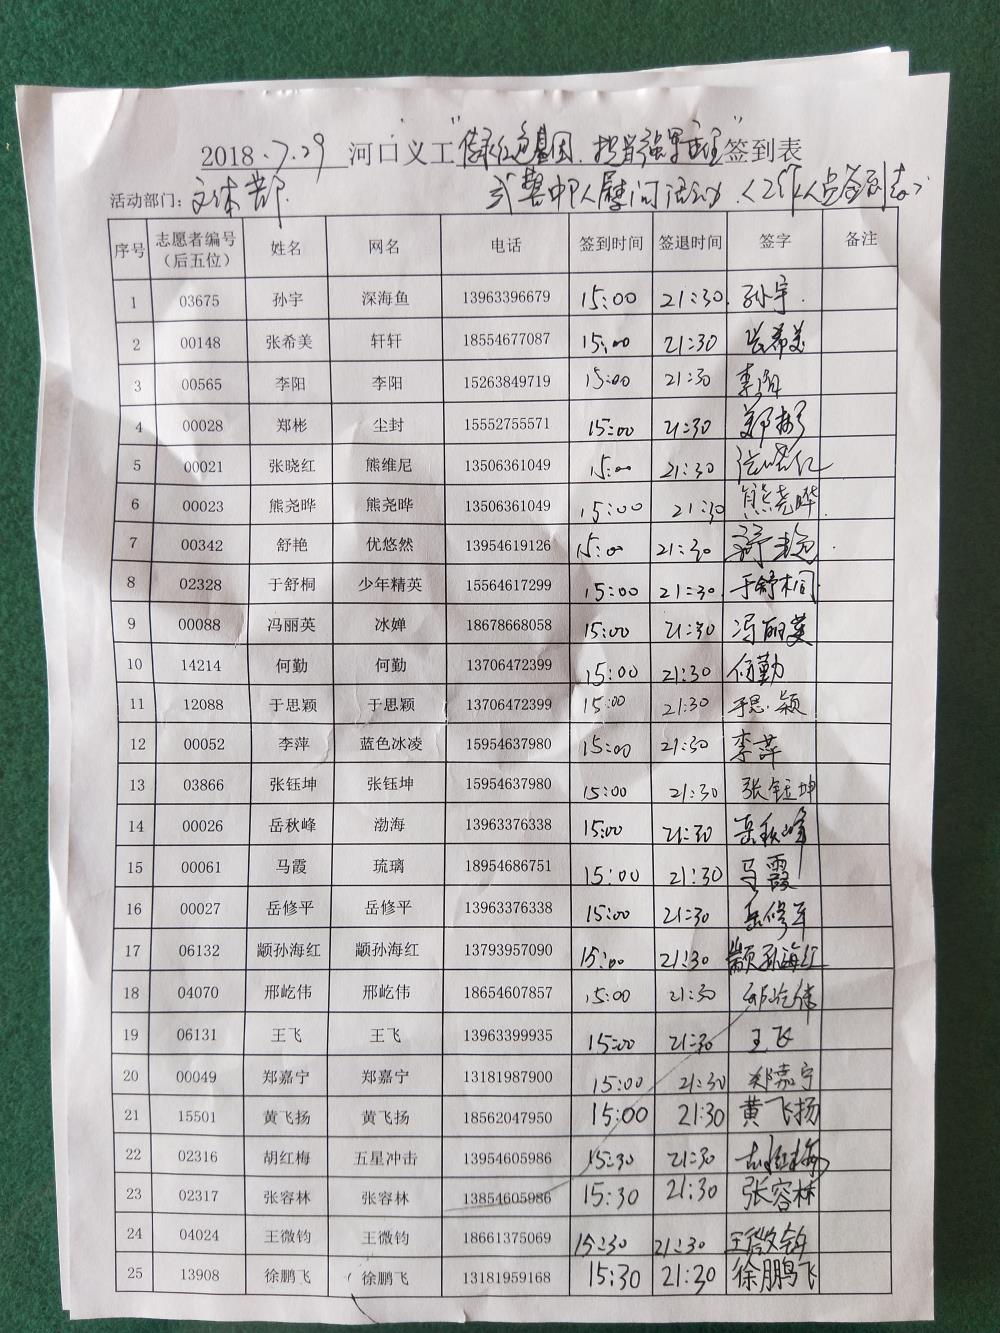 2018.7.29 河口义工“传承红色基因.担当强军重任”签到表
活动部门:文体部 慰问活动(工作人员签到表)
序号 志愿者编号(后五位) 姓名 网名 电话 签到时间 签退时间 签字 备注
1 03675 孙宇 深海鱼 13963396679 15:00 21:30 孙宇
2 00148 张希美 轩轩 18554677087 15:00 21:30 张希美
3 00565 李阳 李阳 15263849719 15:00 21:30 李阳
4 00028 郑彬 尘封 15552755571 15:00 21:30 郑彬
5 00021 张晓红 熊维尼 13506361049 15:00 21:30 张晓红
6 00023 熊尧晔 熊尧晔 13506361049 15:00 21:30 熊尧晔
7 00342 舒艳 优悠然 13954619126 15:00 21:30 舒艳
8 02328 于舒桐 少年精英 15564617299 15:00 21:30 于舒桐
9 00088 冯丽英 冰婵 18678668058 15:00 21:30 冯丽英
10 14214 何勤 何勤 13706472399 15:00 21:30 何勤
11 12088 于思颖 于思颖 13706472399 15:00 21:30 于思颖
12 00052 李萍 蓝色冰凌 15954637980 15:00 21:30 李萍
13 03866 张钰坤 张钰坤 15954637980 15:00 21:30 张钰坤
14 00026 岳秋峰 渤海 13963376338 15:00 21:30 岳秋峰
15 00061 马霞 琉璃 18954686751 15:00 21:30 马霞
16 00027 岳修平 岳修平 13963376338 15:00 21:30 岳修平
17 06132 颛孙海红 颛孙海红 13793957090 15:00 21:30 颛孙海红
18 04070 邢屹伟 邢屹伟 18654607857 15:00 21:30 邢屹伟
19 06131 王飞 王飞 13963399935 15:00 21:30 王飞
20 00049 郑嘉宁 郑嘉宁 13181987900 15:00 21:30 郑嘉宁
21 15501 黄飞扬 黄飞扬 18562047950 15:00 21:30 黄飞扬
22 02316 胡红梅 五星冲击 13954605986 15:30 21:30 胡红梅
23 02317 张容林 张容林 13854605986 15:30 21:30 张容林
24 04024 王微钧 王微钧 18661375069 15:30 21:30 王微钧
25 13908 徐鹏飞 徐鹏飞 13181959168 15:30 21:30 徐鹏飞